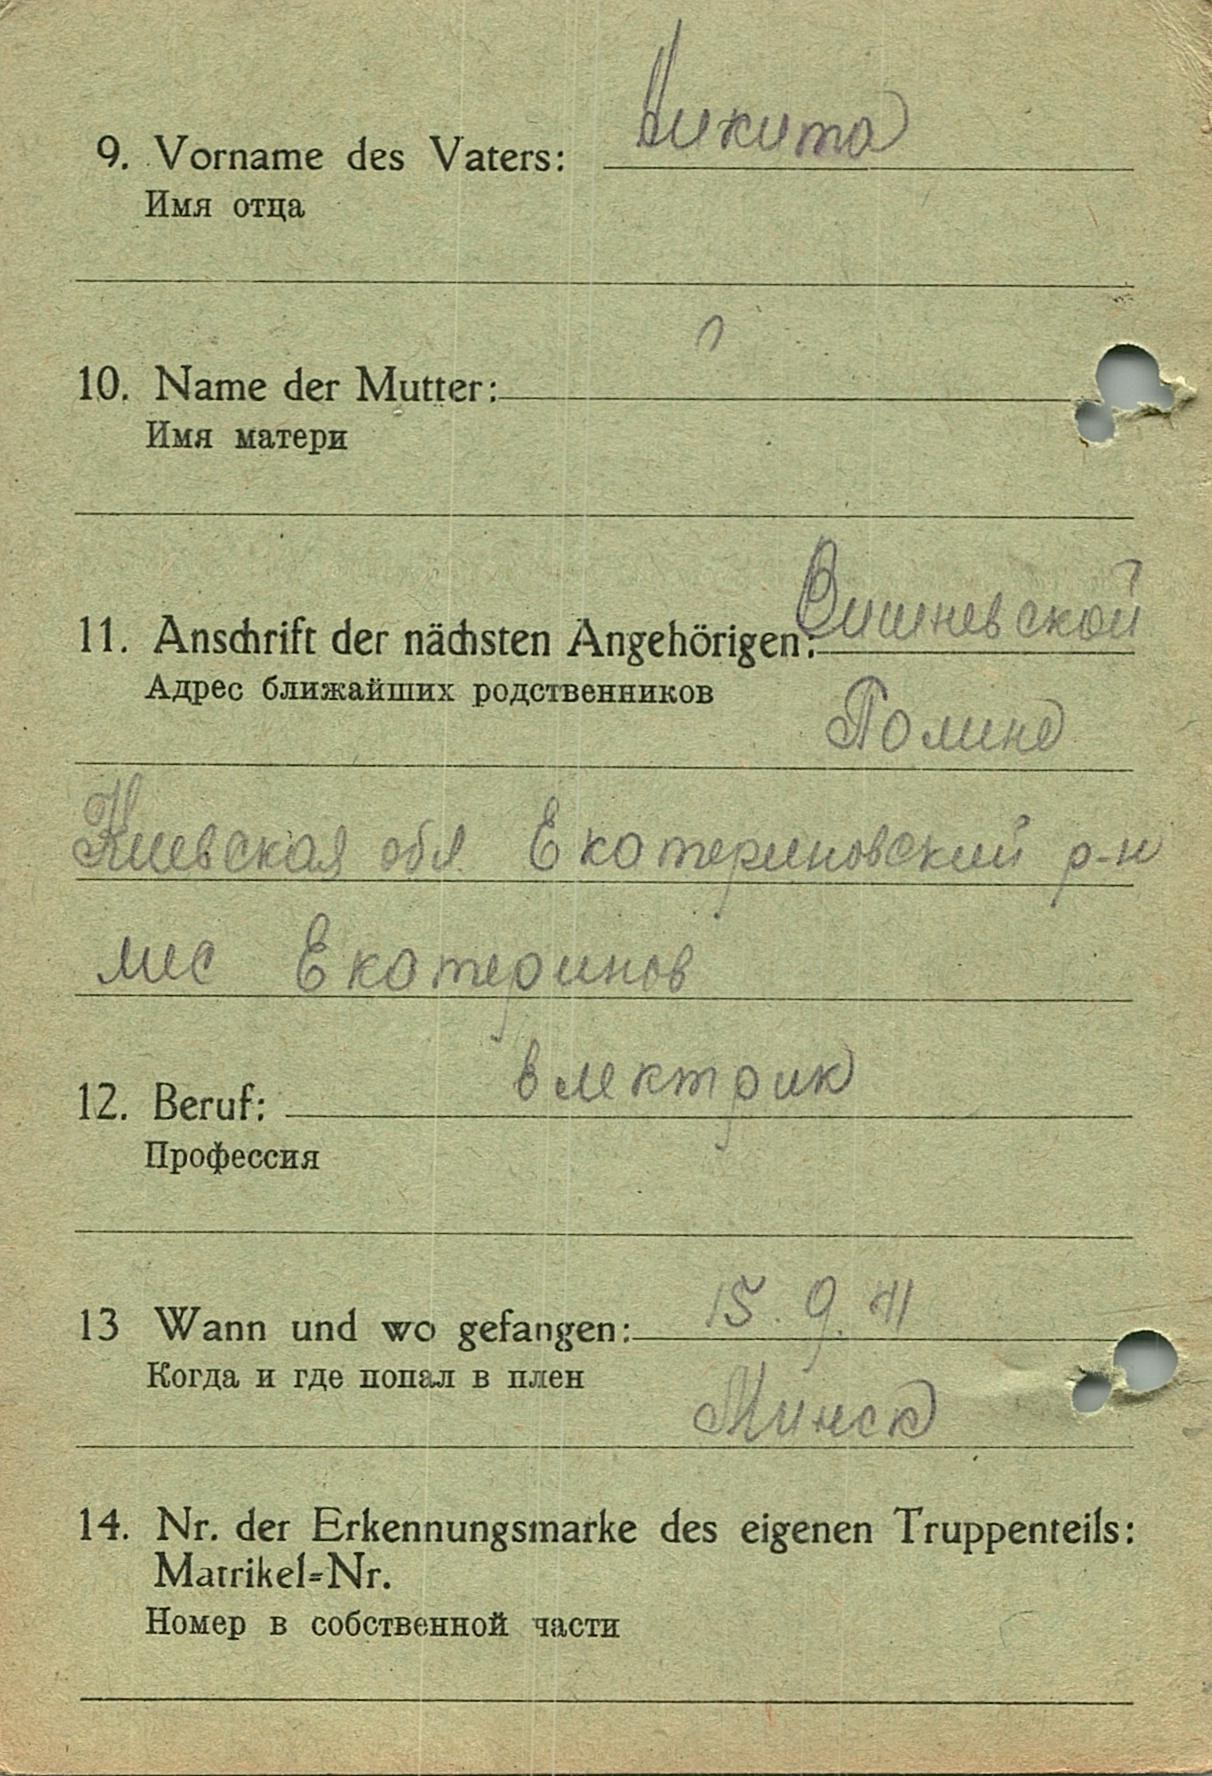 9. Vorname des Vaters: Никита
Имя отца
10. Name der Mutter:
Имя матери
11. Anschrift der nächsten Angehörigen: Вишневской
Адрес ближайших родственников
Полине
Киевская обл Екатериновский р-н
мес Екатеринов
12. Beruf: електрик
Профессия
13 Wann und wo gefangen: 15. 9. 41
Когда и где попал в плен
Минск
14. Nr. der Erkennungsmarke des eigenen Truppenteils:
Matrikel=Nr.
Номер в собственной части